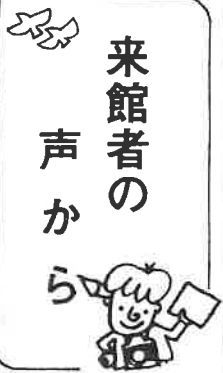 来館者の
声から